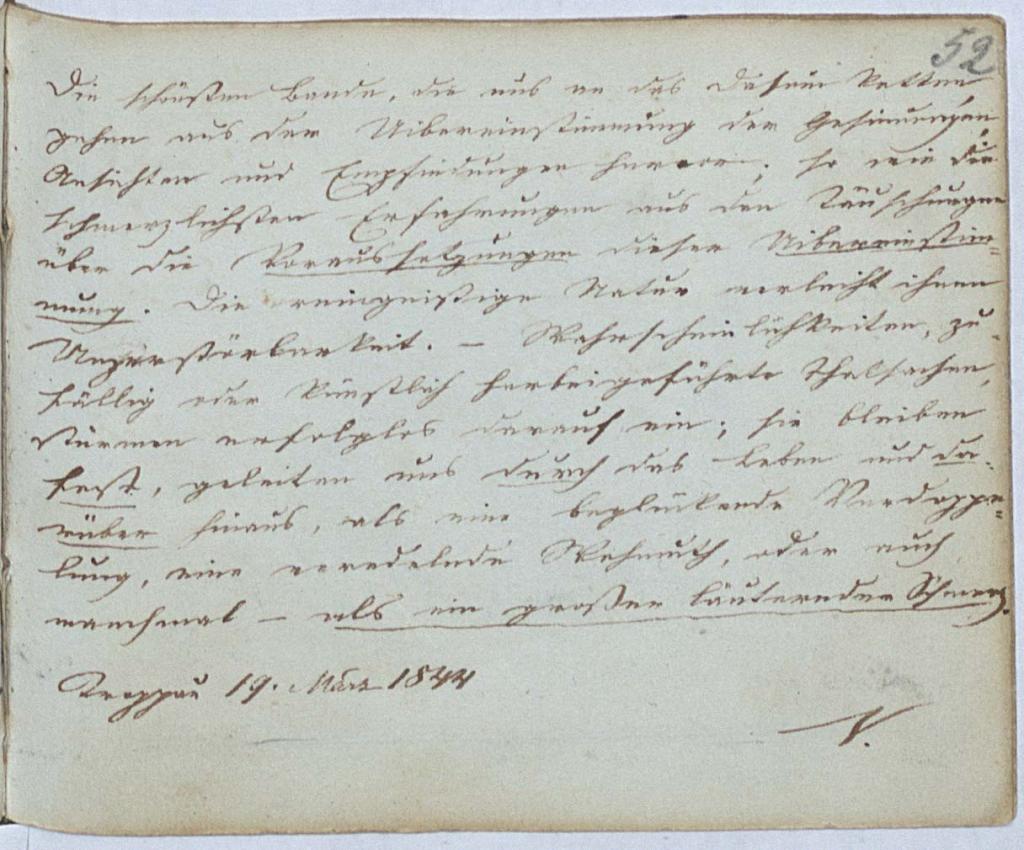 52
Die schönsten Bande, die uns an das Dasein ketten,
gehen aus der Uibereinstimmung der Gesinnungen,
Ansichten und Empfindungen hervor; so wie die
schmerzlichsten Erfahrungen aus den Täuschungen
über die Voraussetzungen dieser Uibereinstim=
mung. Die Natur verleiht ihnen
Unzerstörbarkeit. – Wahrscheinlichkeiten, zu-
fällig oder künstlich herbeigeführte Thatsachen,
stürmen erfolglos darauf ein; sie bleiben
fest, geleiten uns durch das Leben und da-
rüber hinaus, als eine beglückende Verdoppe=
lung, eine veredelnde Wehmuth, oder auch
manchmal – als ein großer läuternder Schmerz.
Troppau 19. März 1844